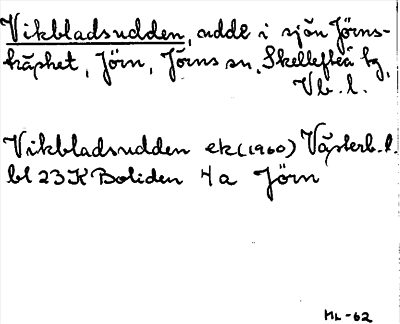 Vikbladsudden, udde i sjön Jörns-
käphet, Jörn, Jörns sn, Skellefteå kg,
Vb. l.
Vikbladsudden ek (1960) Västerb. l.
bl 23 K Boliden 4a Jörn
ML-62